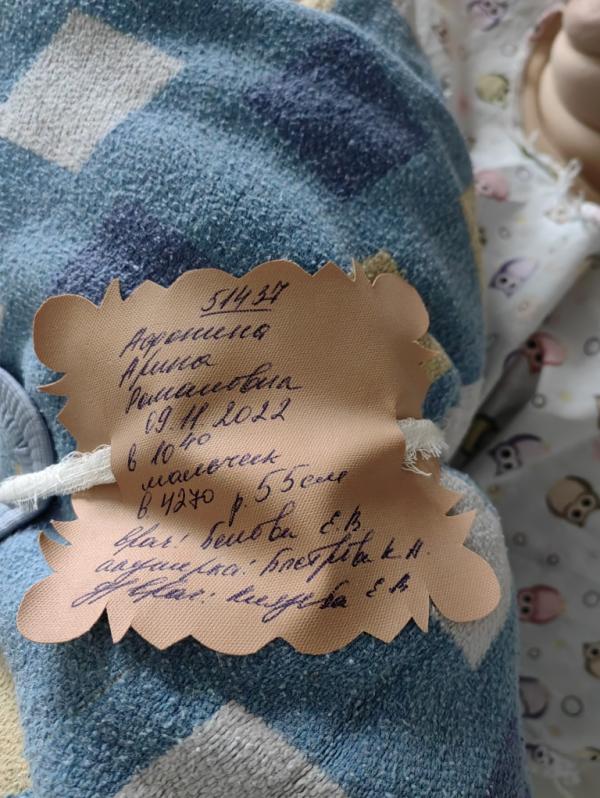 51437
Афонина
Арина
Романовна
09.11.2022
в 10 40
мальчик
в 4270 р. 55 см
врач: Белова Е.В
акушерка: К.А.
врач: Е В